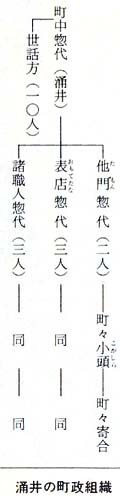 町中惣代（涌井）
世話方（一〇人）
他門惣代（二人）
たもん
町々小頭
こがしら
町々寄合
表店惣代（三人）
おもてだな
同
同
諸職人惣代（三人）
同
同
涌井の町政組織